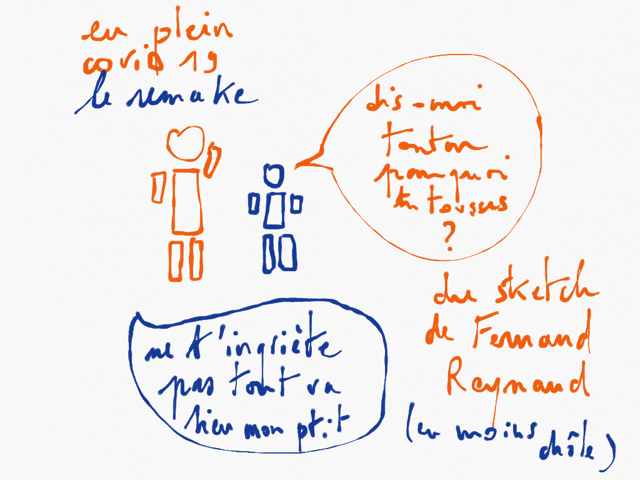 en plein
covid 19
le remake
dis-moi
tonton
pourquoi
tu tousses
?
ne t'inquiète
pas tout va
bien mon ptit
du sketch
de Fernand
Raynaud
(en moins
drôle)